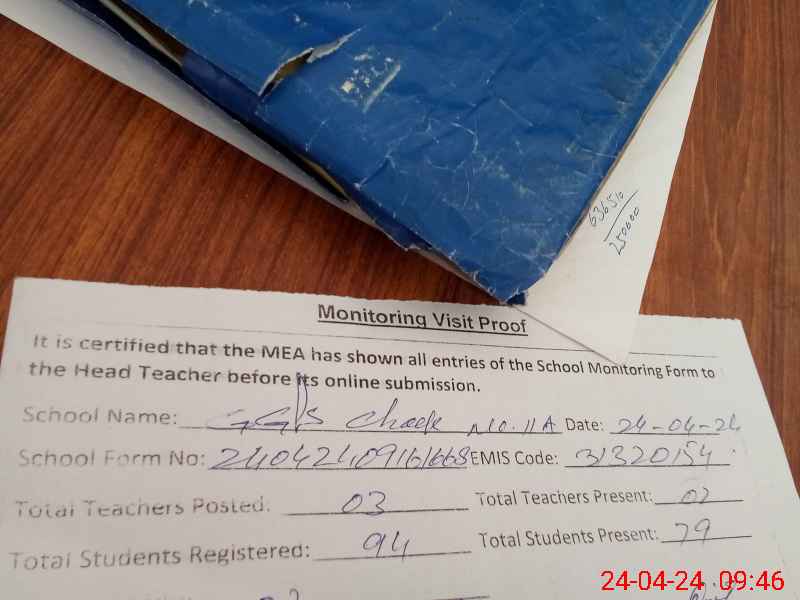 636510
250600
Monitoring Visit Proof
It is certified that the MEA has shown all entries of the School Monitoring Form to
the Head Teacher before its online submission.
School Name: GGPS Chack No. 11 A Date: 24-04-24
School Form No: EMIS Code: 31320154
Total Teachers Posted: 03 Total Teachers Present: 02
Total Students Registered: 94 Total Students Present: 79
24-04-24 09:46